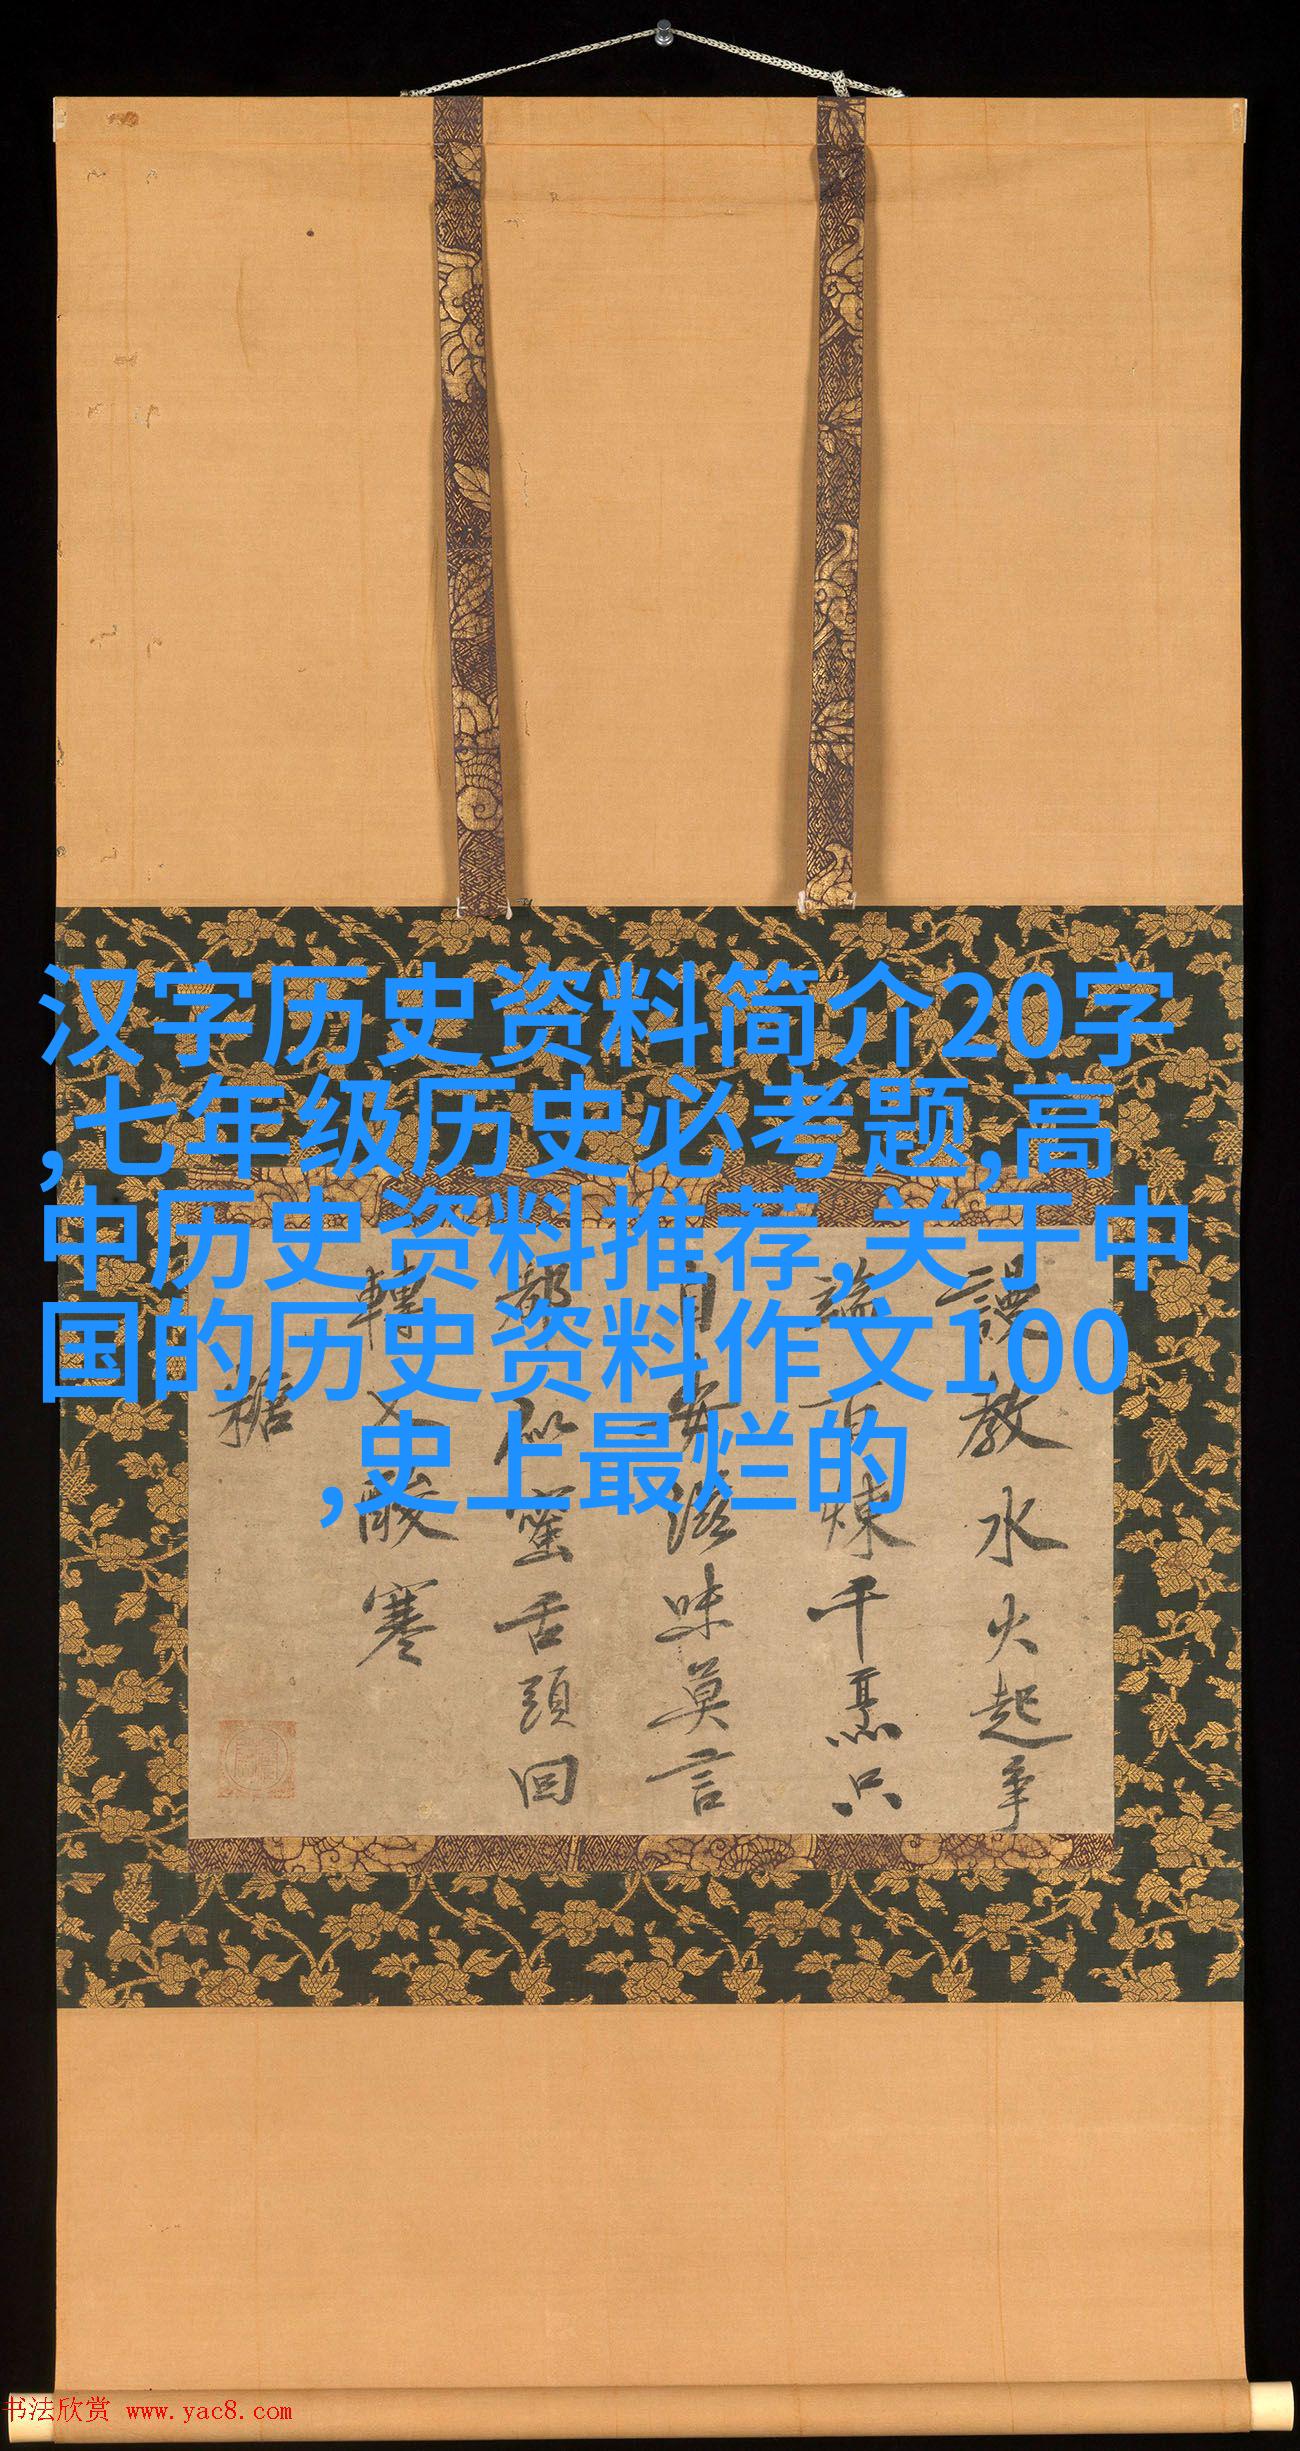 汉字历史资料简介20字
,七年级历史必考题,高
中历史资料推荐,关于中
国的历史资料作文100
,史上最烂的
謾教水火起爭
端百煉千烹只
自安滋味莫言
都似蜜舌頭回
轉又酸寒
糖
书法欣赏 www.yac8.com